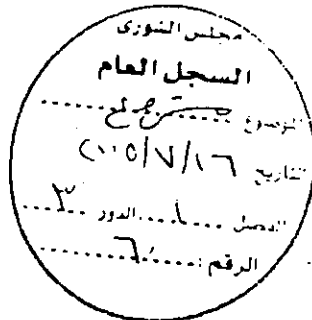 مجلس الشورى
السجل العام
الموضوع
التاريخ ٢٠٠٥/٧/١٦
الفصل ..... ١ ..... الدور ..... ٣
الرقم : ..... ٦